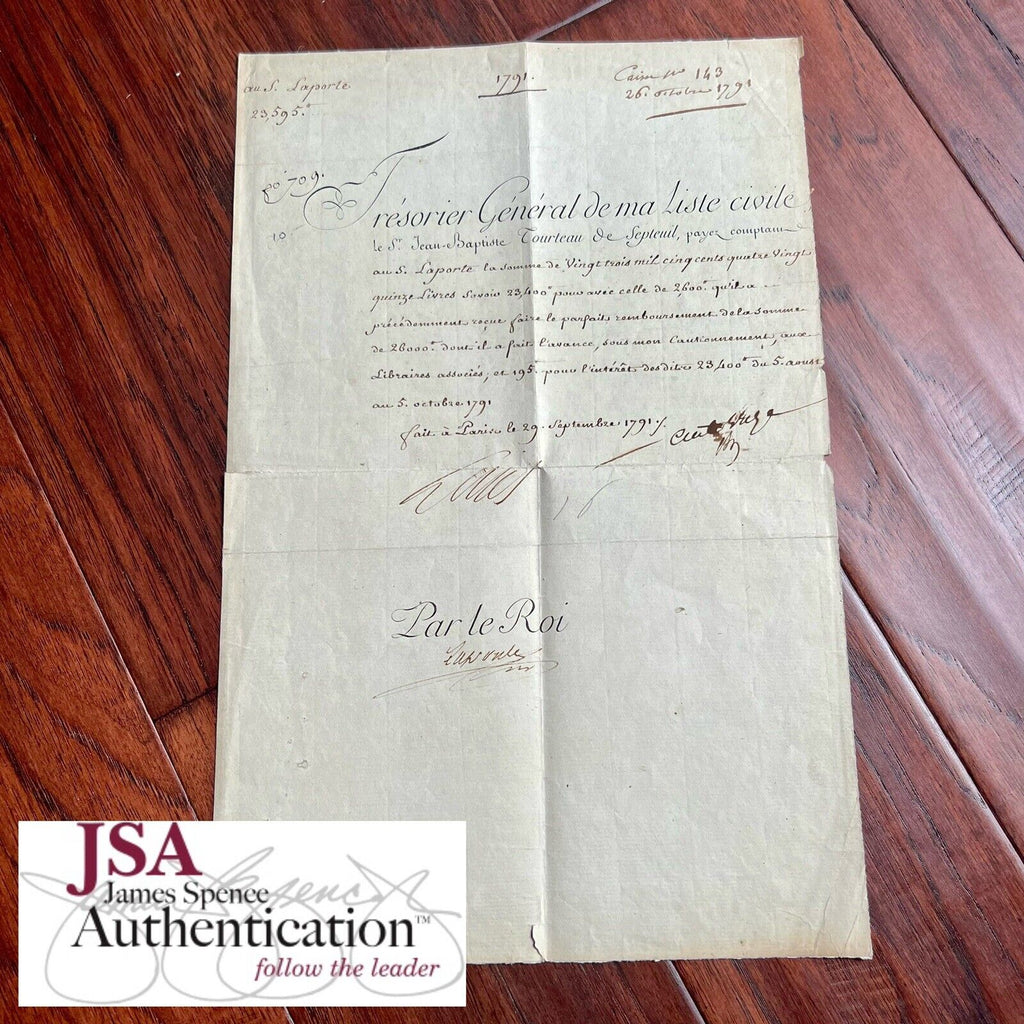 au S. Laporte
23,595.ᵗ
1791.
Caisse N° 143
26. octobre 1791
709.
10
Trésorier Général de ma Liste civile,
le Sr. Jean-Baptiste Tourteau de Septeuil, payez comptant
au S. Laporte la somme de Vingt trois mil cinq cents quatre Vingt
quinze Livres Savoir 23,400ᵗ pour avec celle de 2600ᵗ qu'il a
précédemment reçue faire le parfait remboursement de la somme
de 26000ᵗ dont il a fait l'avance, sous mon Cautionnement, aux
Libraires associés, et 195ᵗ pour l'intérêt desdits 23,400ᵗ du 5. aoust
au 5. octobre 1791
fait à Paris le 29. Septembre 1791./.
Louis
16
Par le Roi
Laporte
JSA
James Spence
Authentication™
follow the leader